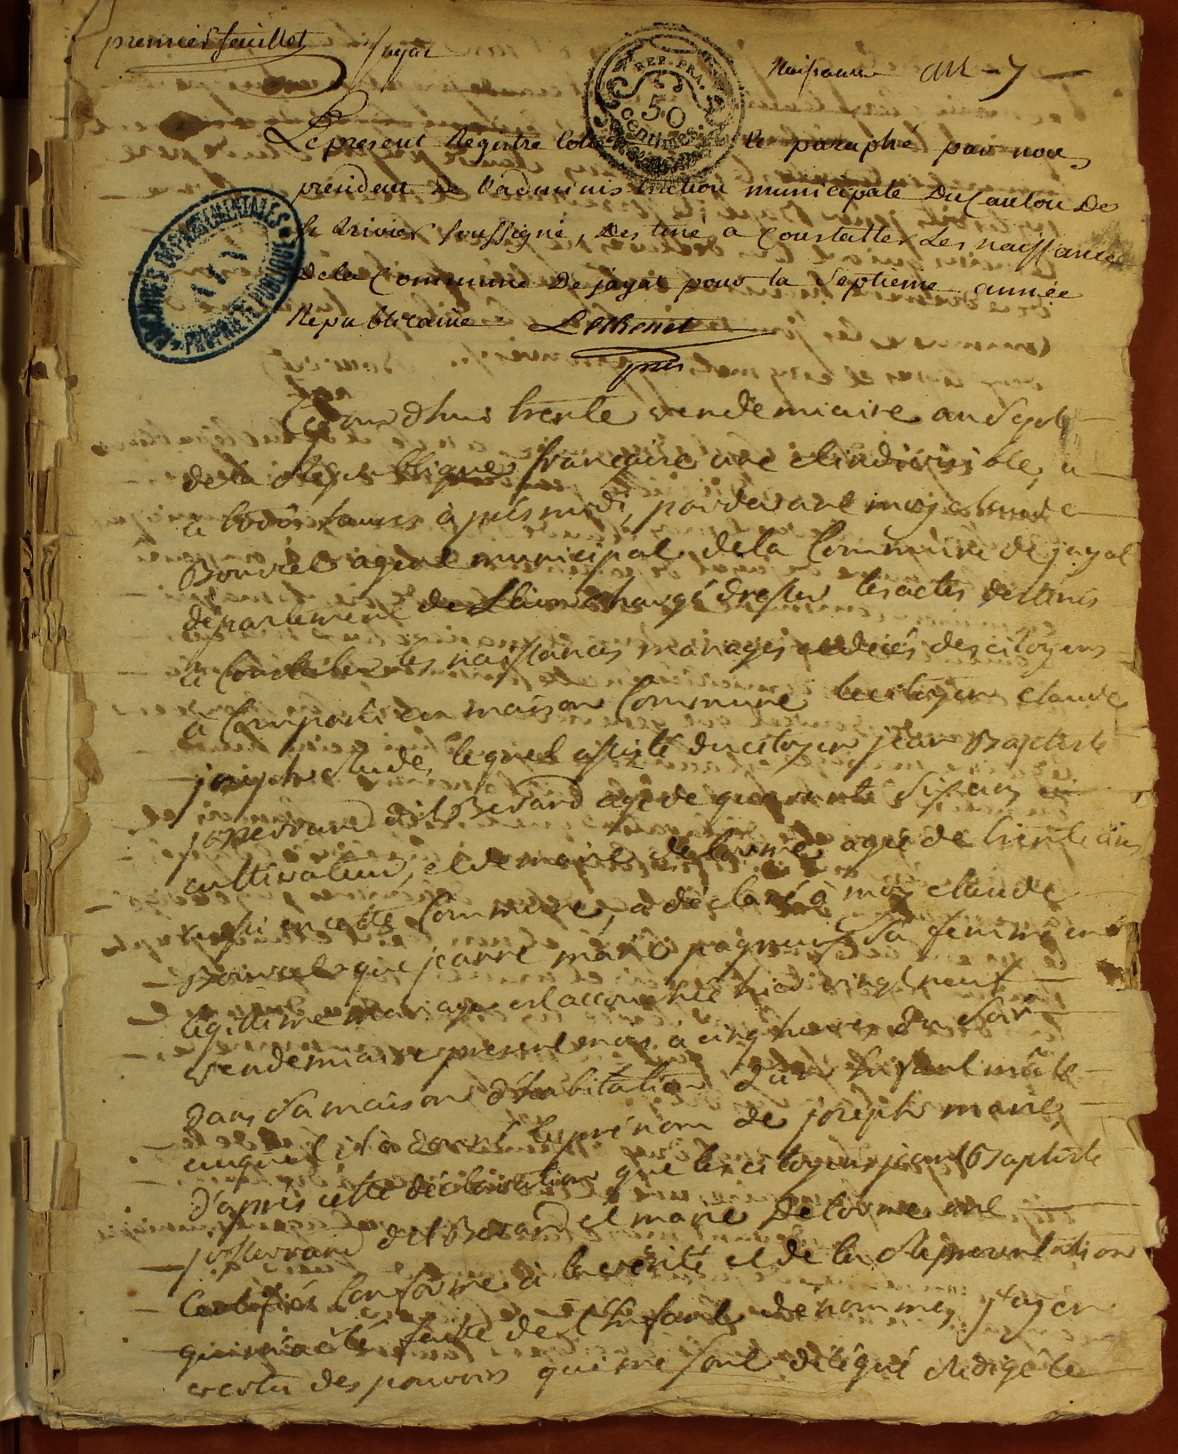 premier feuillet jayat
Naissance an - 7
REP. FRA.
50
centimes
Le present Registre Cotté et paraphé par nous
président de l'administration municipale Du Canton De
St trivier soussigné, Destiné a Constatter Les naissances
De la Commune De jayat pour la Septieme année
Republicaine
ARCHIVES DÉPARTEMENTALES
AIN
PROPRIÉTÉ PUBLIQUE
Cejourd'hui trente vendemiaire an Sept
de la Republique française une et indivisible, a
heures après midi, pardevant moy claude
Bouvet agent municipal de la Commune de jayat
département de l'ain chargé dresser les actes destinés
a Constater les naissances mariages et décés des citoyens
a Comparti en maison Commune le citoyen claude
joseph lequel assisté du citoyen jean Baptiste
josserand dit Berard agé de quarante six ans
cultivateur, et de marie de lorme agée de trente cinq
en cette Commune, a déclaré à moy claude
Bouvet que jeanne marie sa femme en
légittime mariage est accouchée hier vingt neuf
vendemiaire present mois à cinq heures du soir
Dans sa maison d'habitation d'un Enfant mâle
auquel il a donné le prénom de joseph marie,
D'après cette déclaration que les citoyens jean Baptiste
josserand dit Berard et marie Delorme ont
Certifiés Conforme à la vérité et de la Representation
qui m'a été faite de l'Enfant denommé, j'ay en
vertu des pouvoirs qui me sont délégué Redigé le